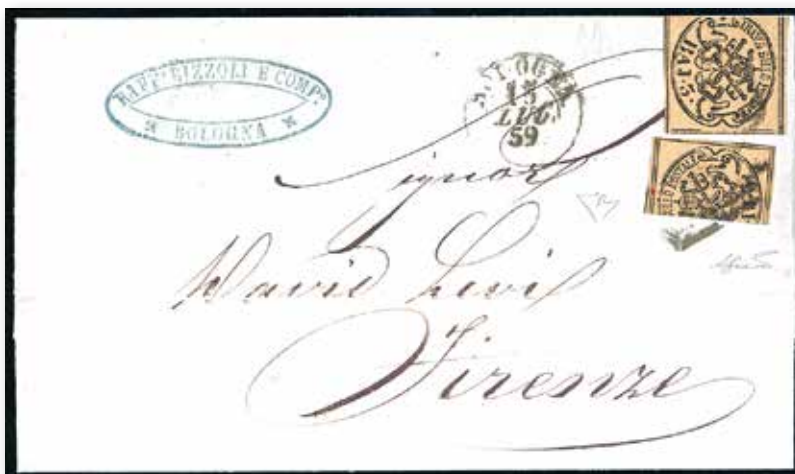 RAFF. RIZZOLI E COMP.
BOLOGNA
BOLOGNA
15
LUG
59
BAJ. 3
Signor
David Levi
Firenze